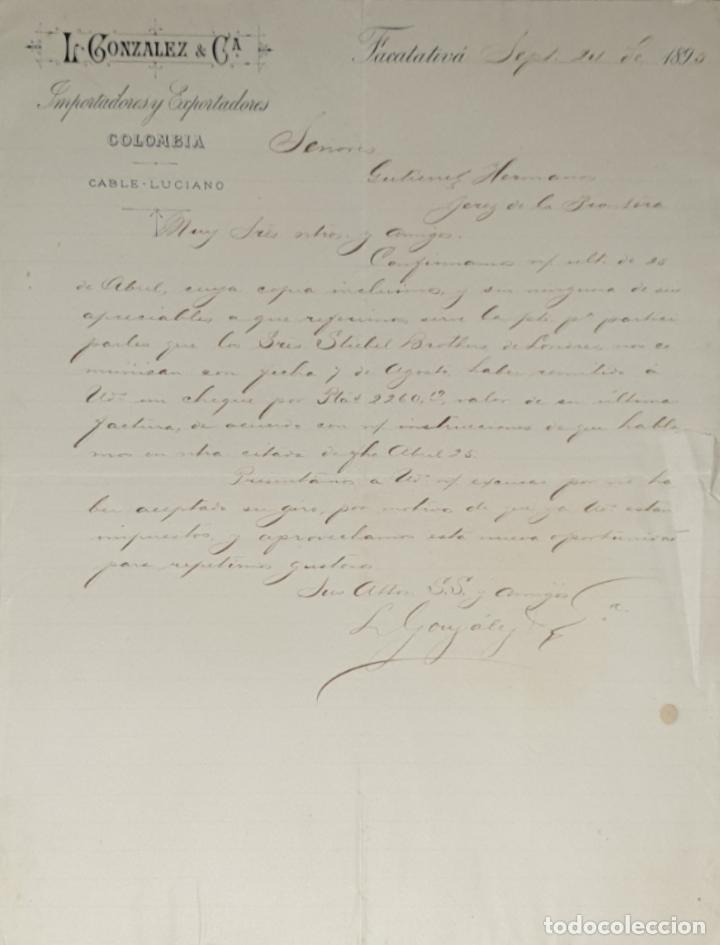 L. GONZALEZ & CA.
Facatativá Sept. 24 de 1895
Importadores y Exportadores
COLOMBIA
CABLE-LUCIANO
Señores
Gutierrez Hermanos
Jerez de la Frontera
Muy Sres ntros y amigos.
Confirmamos n/ ult. de 25
de Abril, cuya copia incluimos, y sin ninguna de sus
apreciables a que referirnos sirve la pte pa partici
parles que los Sres Stiebel Brothers de Londres nos co
munican con fecha 7 de Agosto haber remitido á
Uds un cheque por 2260, valor de su última
factura, de acuerdo con n/ instrucciones de que habla
mos en ntra citada de fha Abril 25.
Presentamos a Uds n/ excusas por no ha
ber aceptado su giro, por motivo de que ya Uds estan
impuestos y aprovechamos esta nueva oportunidad
para repetirnos gustosos
Sus Attos S.S. y amigos
L. González & Ca
todocoleccion